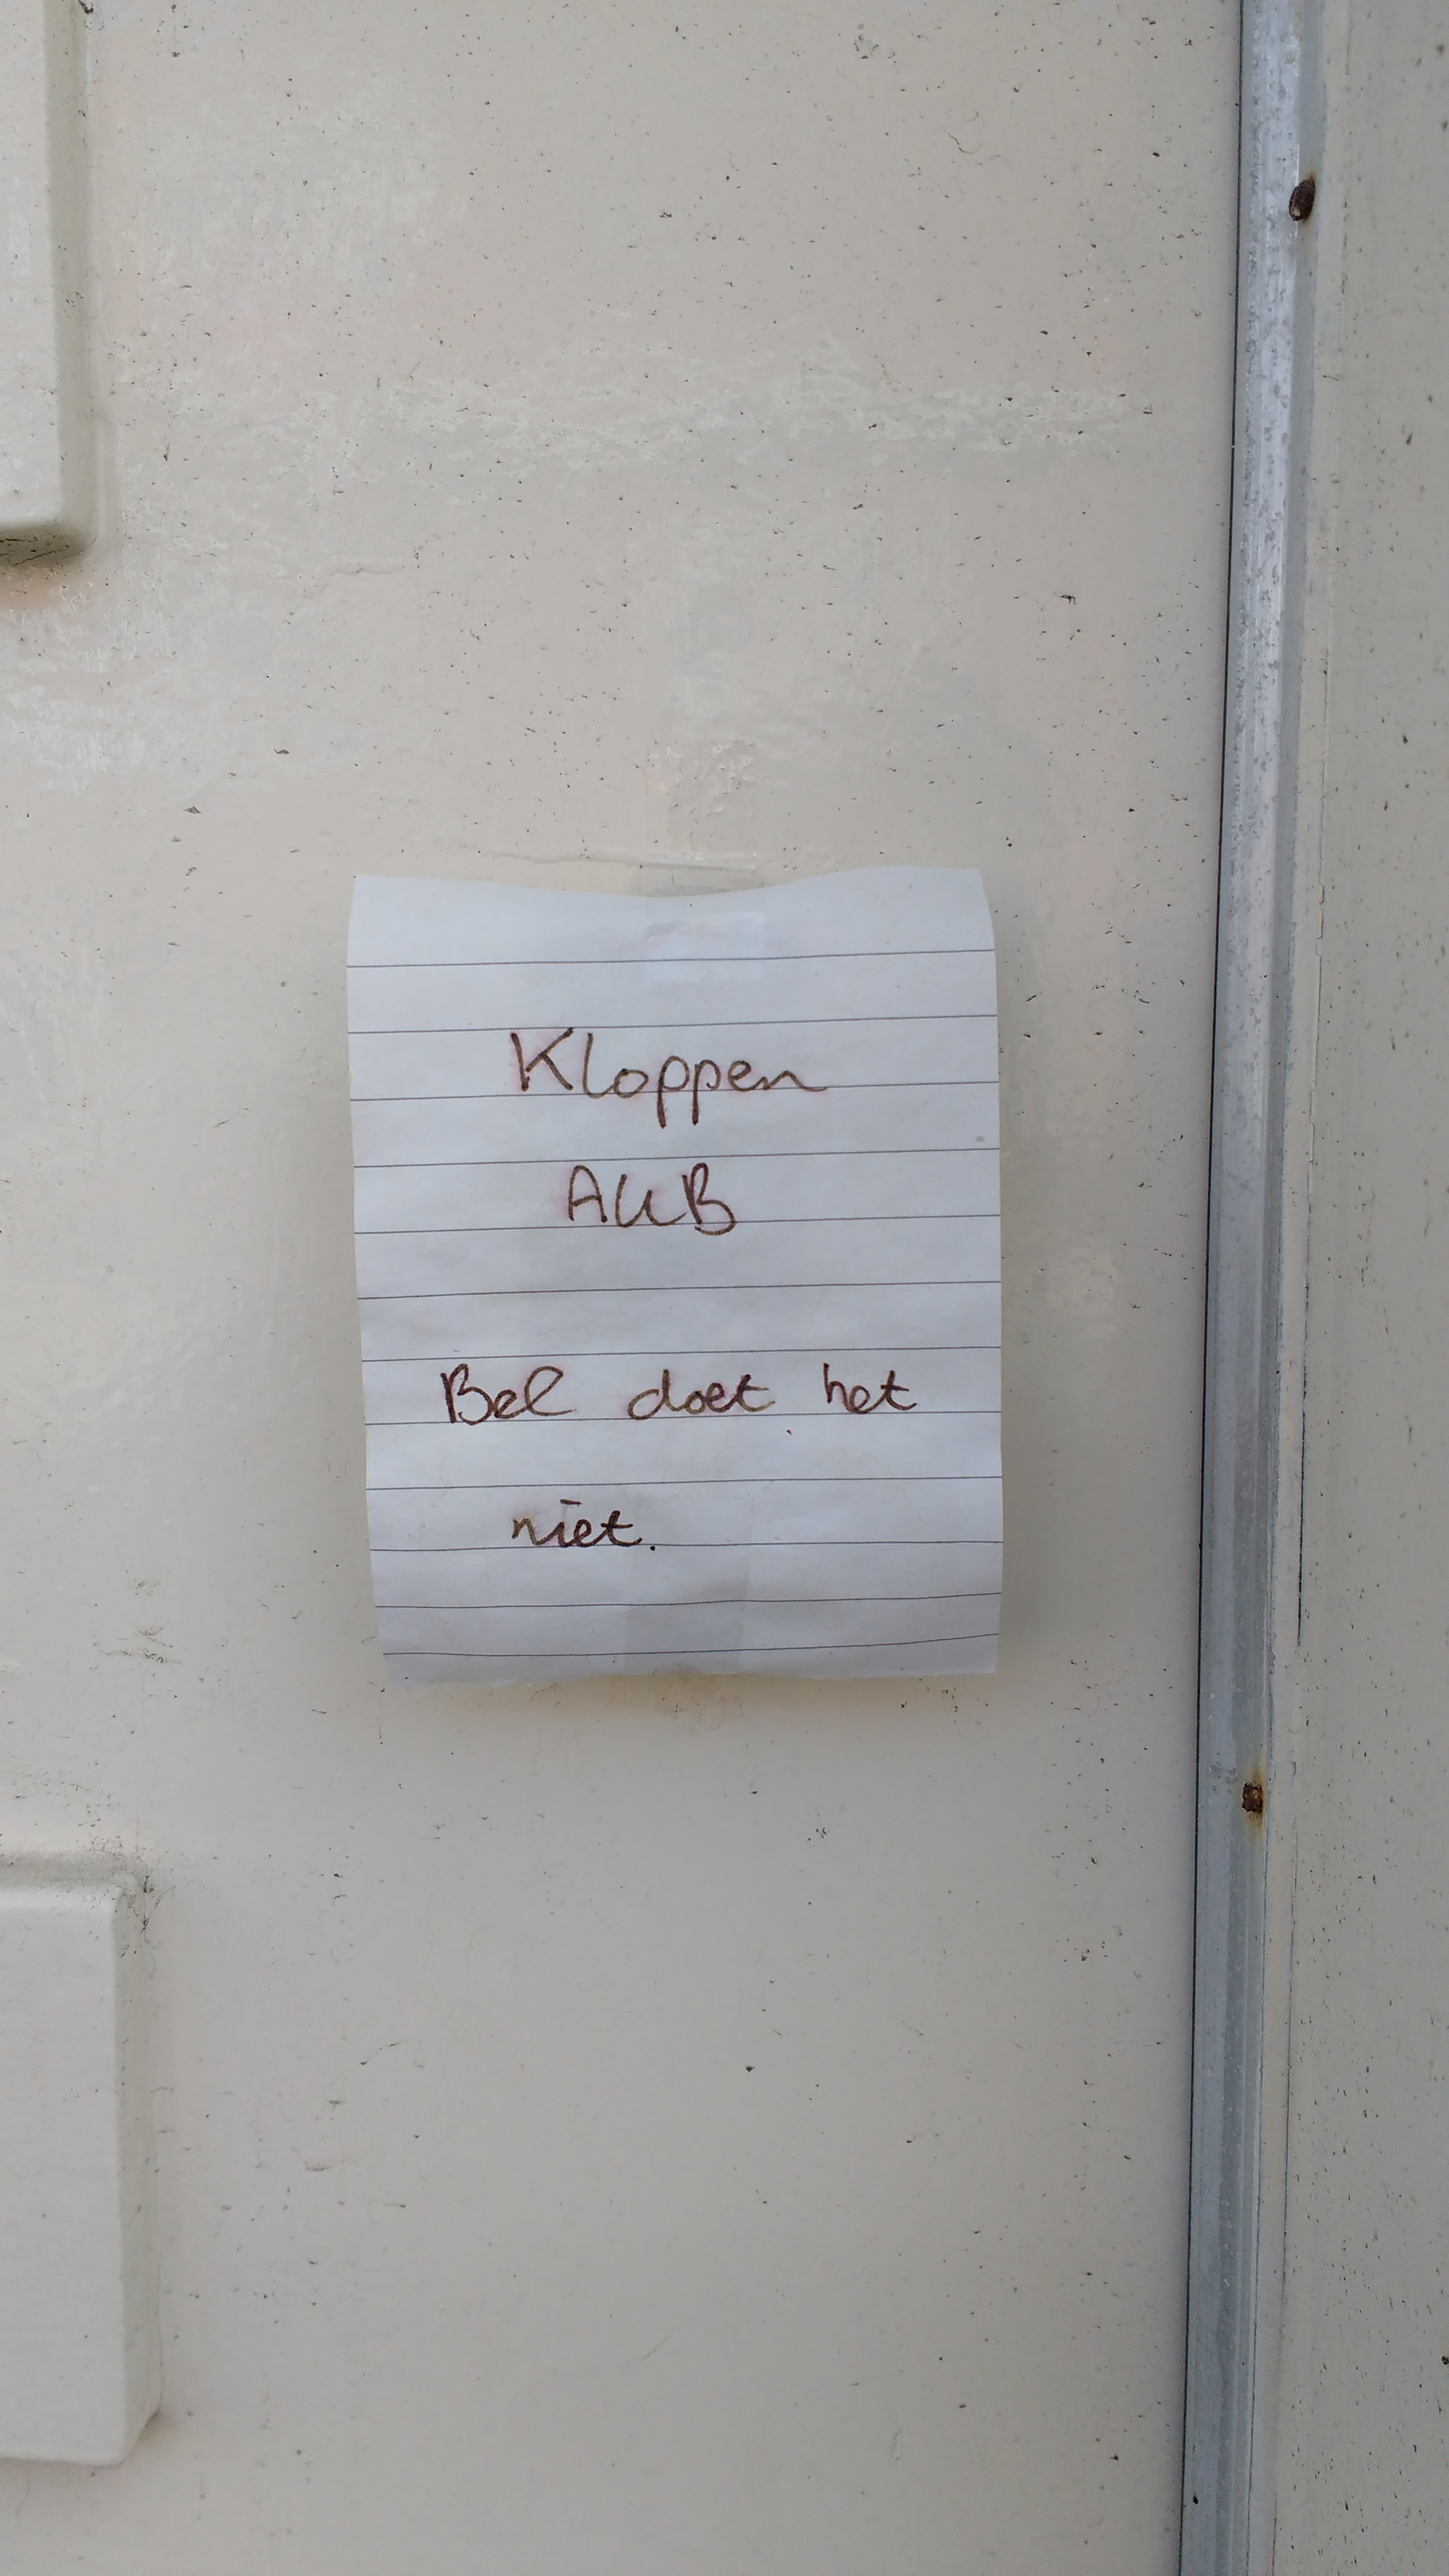 Kloppen
AUB
Bel doet het
niet.